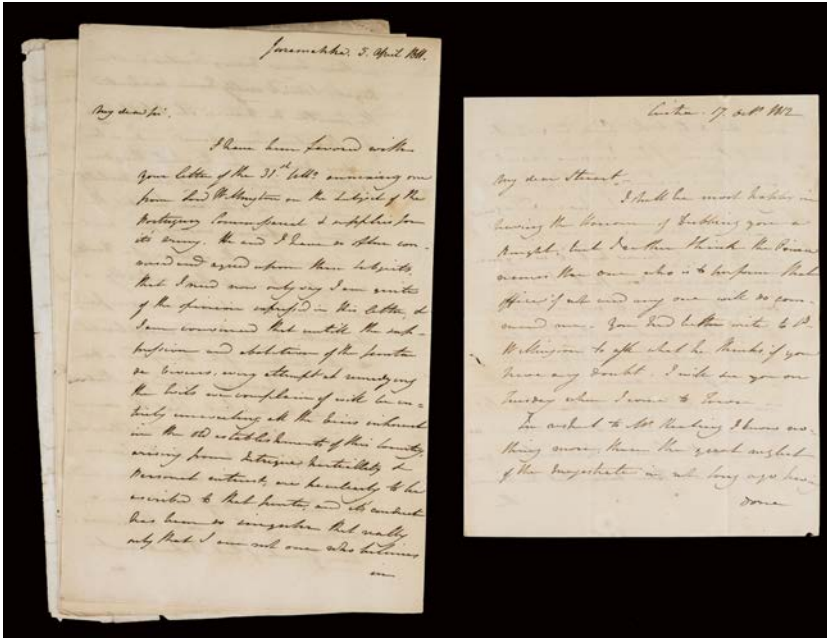 5. April 1811.
My dear Sir,
I have been favord with
your letter of the 31st Ulto. announcing one
from Lord Wellington on the subject of the
Portuguese Commissariat & supplies for
its army. He and I have so often con-
versed and agreed upon these subjects,
that I need now only say I am quite
of the opinion expressed in this letter, &
I am convinced that untill the sup-
pression and abolition of the Junta
de Viveres, every attempt at remedying
the Evils we complain of will be en-
tirely unavailing all the Vices inherent
in the old establishments of this Country,
arising from Intrigue Partiallity &
Personal interest, are peculiarly to be
ascribed to that Junta, and its conduct
has been so singular that really
only that I am not one who believes
in
17. Octr. 1812
My dear Stuart,
I shall be most happy in
having the Honour of dubbing you a
Knight, but I rather think the Prince
names the one who is to perform that
office if not and any one will do com-
mand me. You had better write to Ld.
Wellington to ask what he thinks if you
have any doubt. I will see you on
Tuesday when I come to Town
In respect to Mr. Keating I know no-
thing more, than the great neglect
of the Magistrate in not long ago
done